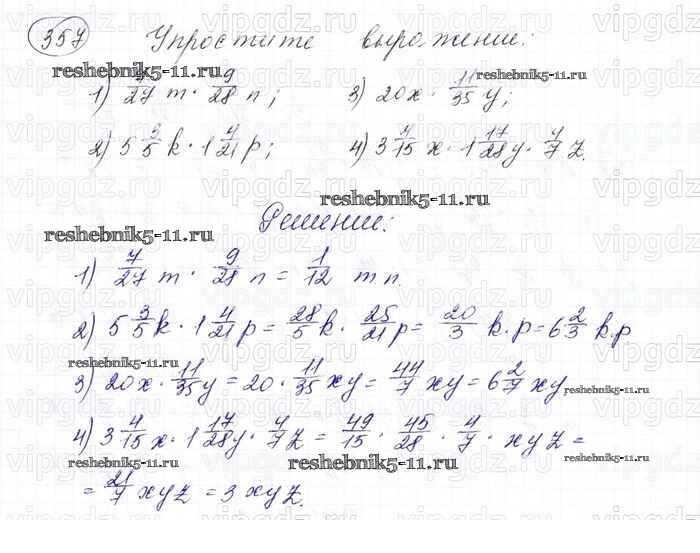 357 Упростите выражение:
reshebnik5-11.ru reshebnik5-11.ru
1) 7/27 m · 9/28 n; 3) 20x · 11/35 y;
2) 5 3/5 k · 1 4/21 p; 4) 3 4/15 x · 1 17/28 y · 4/7 z.
reshebnik5-11.ru
Решение:
reshebnik5-11.ru
1) 7/27 m · 9/28 n = 1/12 mn.
2) 5 3/5 k · 1 4/21 p = 28/5 k · 25/21 p = 20/3 k·p = 6 2/3 k·p
reshebnik5-11.ru
3) 20x · 11/35 y = 20 · 11/35 xy = 44/7 xy = 6 2/7 xy
reshebnik5-11.ru
4) 3 4/15 x · 1 17/28 y · 4/7 z = 49/15 · 45/28 · 4/7 · xyz =
reshebnik5-11.ru reshebnik5-11.ru reshebnik5-11.ru
= 21/7 xyz = 3xyz.